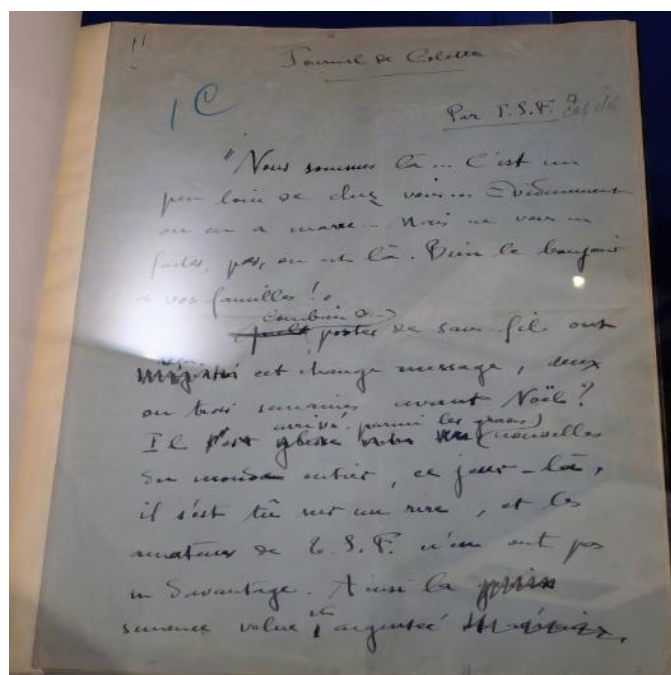 11
Journal de Colette
1 C
Par T.S.F.
"Nous sommes là... C'est un
peu loin de chez vous... Évidemment
on en a marre... Mais ne vous en
faites pas, on est là. Bien le bonjour
à vos familles!"
combien de
postes de sans-fil ont
cet étrange message, deux
ou trois semaines avant Noël?
arrivé, parmi les graves
Il nouvelles
du monde entier, ce jour-là,
il s'est tû sur un rire, et les
amateurs de T.S.F. n'en ont pas
su davantage. Ainsi la
semence velue et argentée